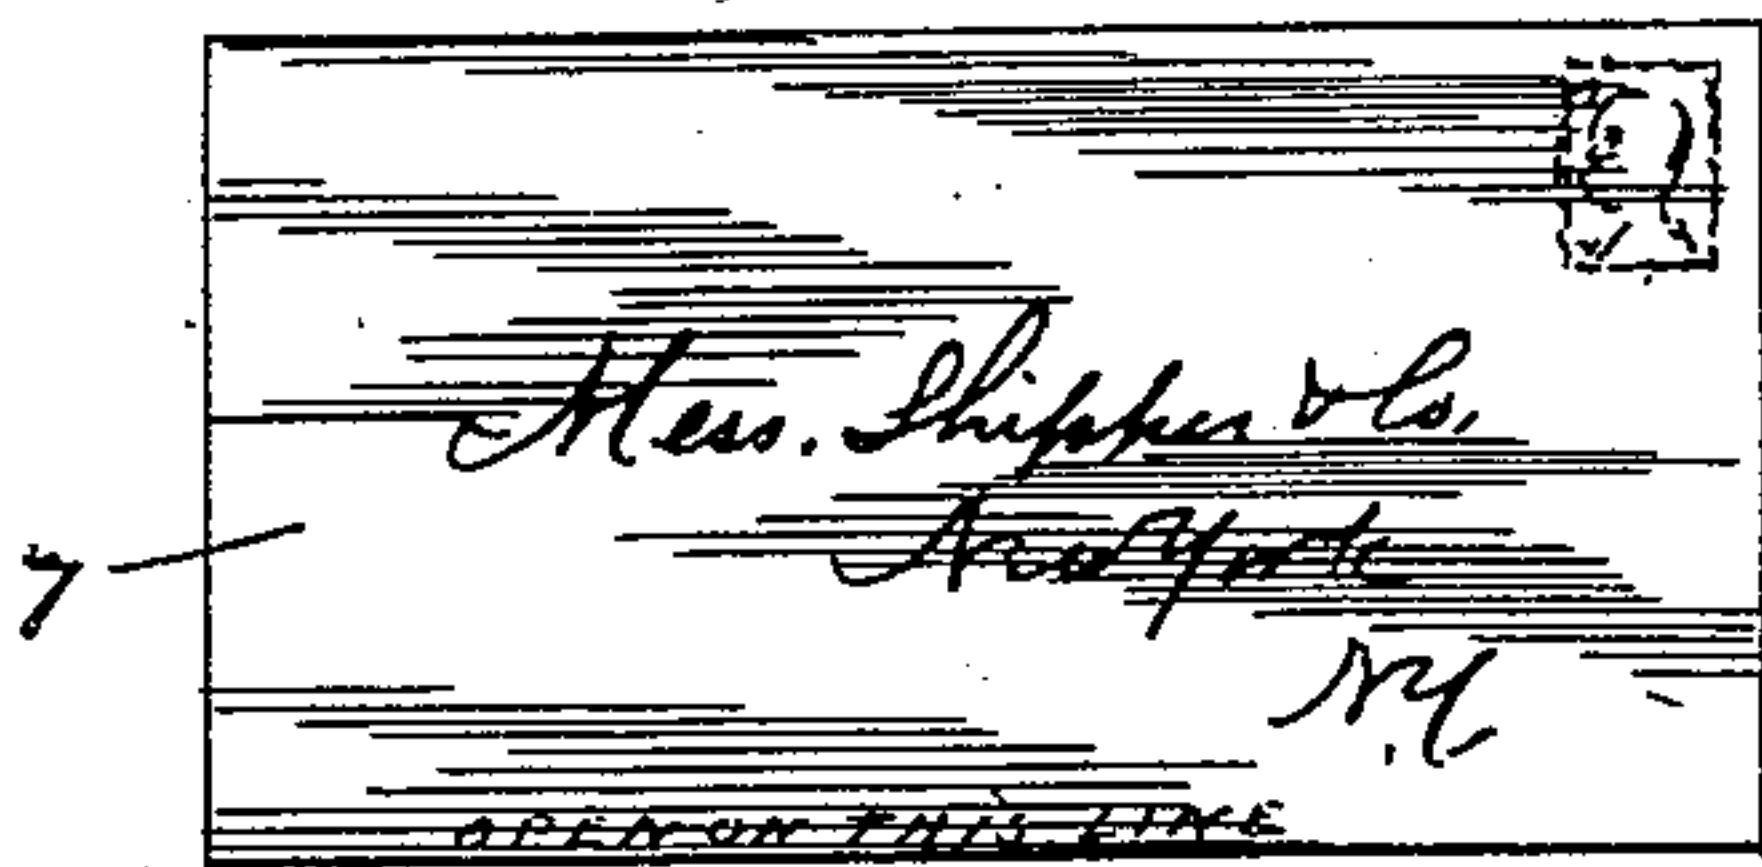 Mess. Shipper & Co.
New York
N.Y.
7
OPEN ON THIS LINE